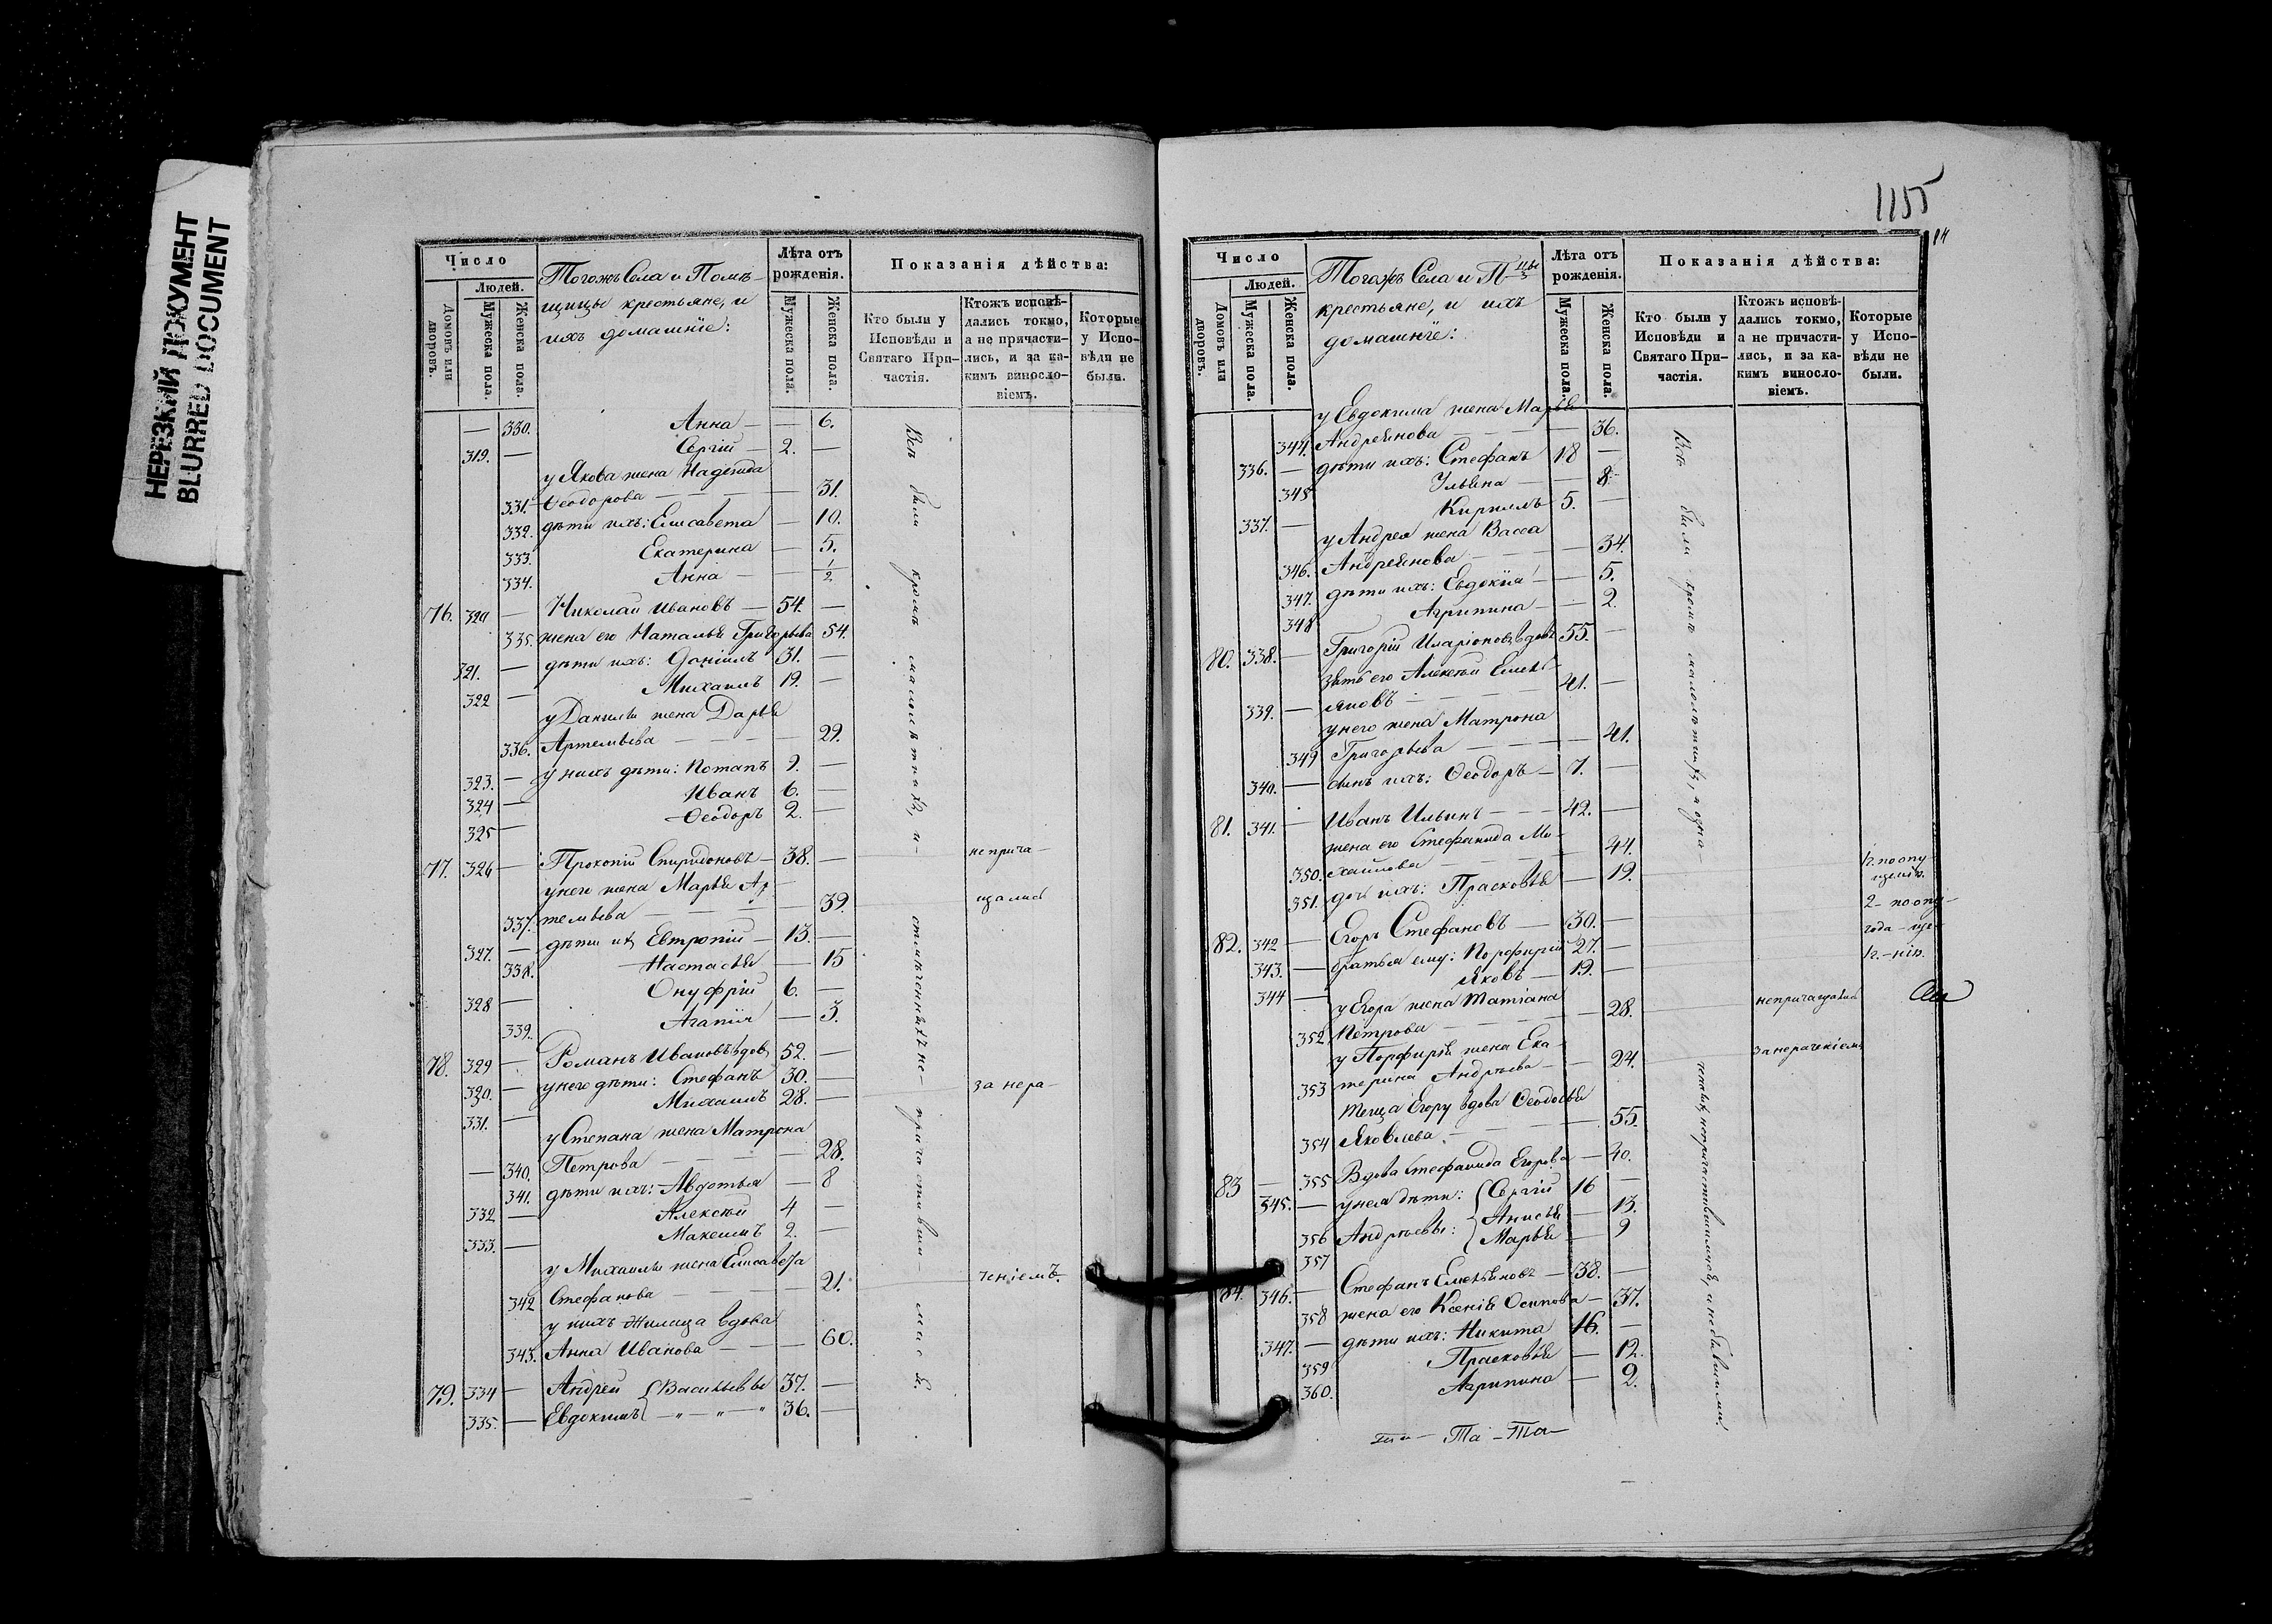 НЕРЕЗКИЙ ДОКУМЕНТ
BLURRED DOCUMENT
Число
Людей.
Домовъ или дворовъ.
Мужеска пола.
Женска пола.
Тогожъ Села и Помѣ-
щицы крестьяне, и
ихъ домашніе:
Лѣта отъ рожденія.
Мужеска пола.
Женска пола.
Показанія дѣйства:
Кто были у Исповѣди и Святаго При-частія.
Ктожъ исповѣ-дались токмо, а не причасти-лись, и за ка-кимъ винословіемъ.
Которые у Испо-вѣди не были.
— 330. Анна — — 6.
319. — Сергій — 2. —
у Якова жена Надежда
331. Ѳеодорова — — — — 31.
332. дѣти ихъ: Елисавета — 10.
333. Екатерина — 5.
334. Анна — — 1/2
76. 320 — Николай Ивановъ — 54. —
335. жена его Наталья Григорьева 54.
321. — дѣти ихъ: Даніилъ 31. —
322 — Михаилъ 19. —
у Данилы жена Дарья
336. Артемьева — — — — 29.
323. — у нихъ дѣти: Потапъ 9. —
324 — Иванъ 6. —
325 — Ѳеодоръ 2. —
77. 326 — Прокопій Спиридоновъ — 38. —
у него жена Марья Ар-
337. темьева — — — — 39.
327. — дѣти ихъ Евтропій — 13. —
338. Настасья — 15
328 — Онуфрій 6. —
339. Агапія — 3.
78. 329 — Романъ Ивановъ вдов. 52. —
330. — у него дѣти: Стефанъ 30. —
331. — Михаилъ 28. —
у Степана жена Матрона
— 340. Петрова — — — — 28.
341. дѣти ихъ: Авдотья — 8
332 — Алексѣй 4 —
333. — Максимъ 2. —
у Михаилы жена Елисавета
342 Стефанова — — — — 21.
у нихъ жилица вдова
343. Анна Иванова — — — 60.
79. 334 — Андрей { Васильевы 37. —
335. — Евдокимъ { — „ — „ — „ 36. —
Всѣ были кромѣ малолѣтныхъ, и
не прича-
щались
за нера-
ченіемъ.
1155
14
Число
Людей.
Домовъ или дворовъ.
Мужеска пола.
Женска пола.
Тогожъ Села и П-цы
крестьяне, и ихъ
домашніе:
Лѣта отъ рожденія.
Мужеска пола.
Женска пола.
Показанія дѣйства:
Кто были у Исповѣди и Святаго При-частія.
Ктожъ исповѣ-дались токмо, а не причасти-лись, и за ка-кимъ винословіемъ.
Которые у Испо-вѣди не были.
у Евдокима жена Марья
344. Андреянова — — — — 36.
336. — дѣти ихъ: Стефанъ 18 —
345 Ульяна — — 8.
337. — Кириллъ 5. —
у Андрея жена Васса
346. Андреянова — — — — 34.
347. дѣти ихъ: Евдокія — — 5.
348 Агрипина — — 2.
80. 338. — Григорій Иларіоновъ вдов. 55. —
зять его Алексѣй Емель-
339. — яновъ — — — — 41. —
у него жена Матрона
349 Григорьева — — — — 41.
340. — сынъ ихъ: Ѳеодоръ — 7. —
81. 341. — Иванъ Ильинъ — — 42. —
жена его Стефанида Ми-
350. хайлова — — — — 44.
351. дочь ихъ: Прасковья — 19.
82. 342 — Егоръ Стефановъ — 30. —
343. — братья ему: Порфирій 27. —
344 — Яковъ — 19. —
у Егора жена Татіана
352 Петрова — — — — 28.
у Порфирія жена Ека-
353 терина Андреева — — 24.
Теща Егору вдова Ѳеодосья
354 Яковлева — — — — 55.
83 — 355 Вдова Стефанида Егорова — 40.
345. — у нея дѣти: { Сергій 16 —
356 Андреевы: { Анисья — 13.
357 { Марья — 9
84. 346. — Стефанъ Емельяновъ — 38. —
358 жена его Ксенія Осипова — 37.
347. — дѣти ихъ: Никита 16. —
359 Прасковья — 12.
360. Агрипина — 2.
Всѣ были кромѣ малолѣтныхъ, а одна
не причащались
за нераченіемъ
2 — по опу-
года — ще-